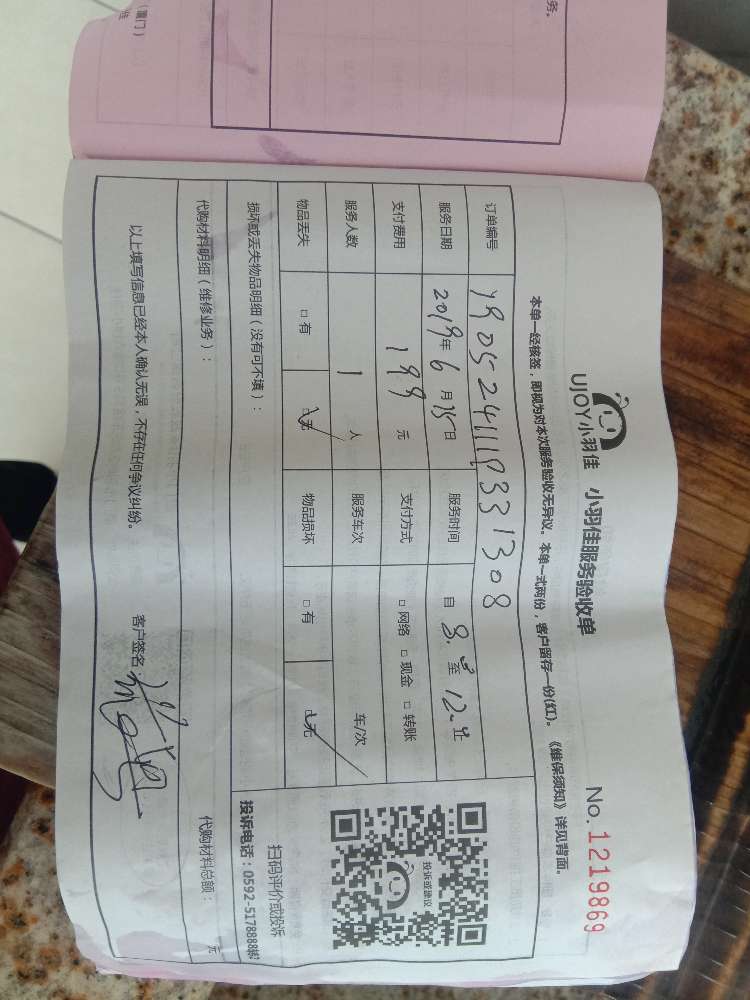 务。
(厦门)
UJOY小羽佳 小羽佳服务验收单 No.1219869
本单一经核签，即视为对本次服务验收无异议。本单一式两份，客户留存一份(红)。《维保须知》详见背面。
订单编号
服务日期 2019年6月15日 服务时间 自 8.00 至 12.00 止
支付费用 199 元 支付方式 □ 网络 □ 现金 □ 转账
服务人数 1 人 服务车次 车/次
物品丢失 □ 有 ☑无 物品损坏 □ 有 ☑无
损坏或丢失物品明细（没有可不填）：
扫码评价或投诉
投诉或建议
投诉电话：0592-5178888转
代购材料明细（维修业务）：
代购材料总额： 元
以上填写信息已经本人确认无误，不存在任何争议纠纷。 客户签名：